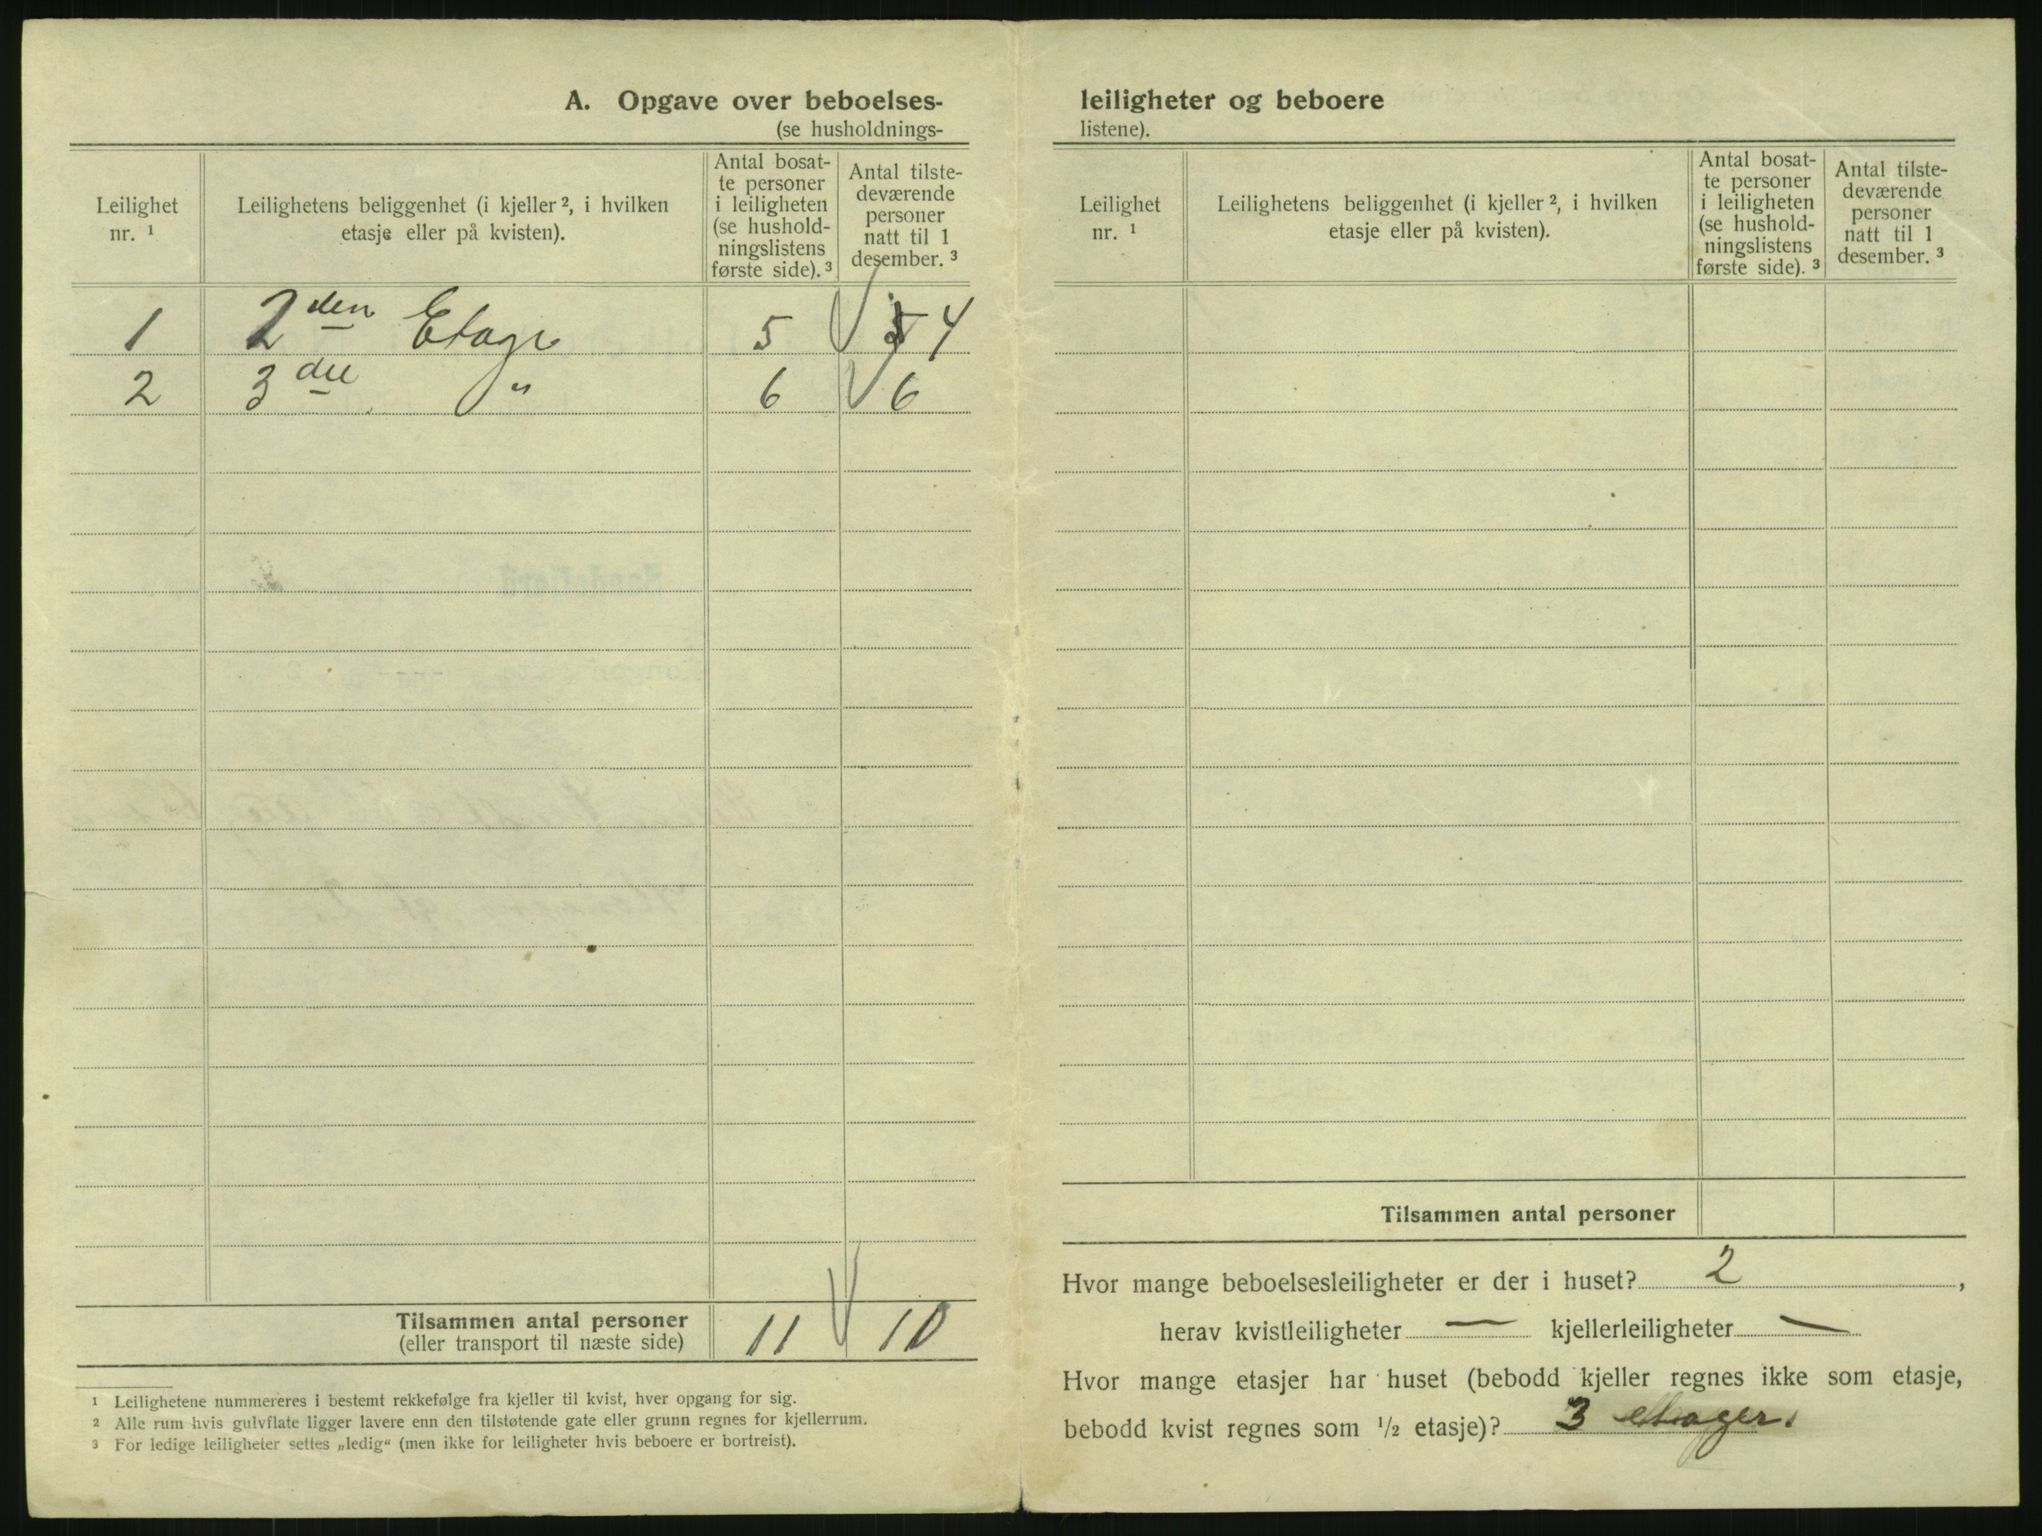 A. Opgave over beboelses-
(se husholdnings-
Leilighet
nr. ¹
Leilighetens beliggenhet (i kjeller ², i hvilken
etasje eller på kvisten).
Antal bosat-
te personer
i leiligheten
(se hushold-
ningslistens
første side). ³
Antal tilste-
deværende
personer
natt til 1
desember. ³
1 2den Etage 5 5 4
2 3die " 6 6
Tilsammen antal personer
(eller transport til næste side) 11 10
¹ Leilighetene nummereres i bestemt rekkefølge fra kjeller til kvist, hver opgang for sig.
² Alle rum hvis gulvflate ligger lavere enn den tilstøtende gate eller grunn regnes for kjellerrum.
³ For ledige leiligheter settes „ledig“ (men ikke for leiligheter hvis beboere er bortreist).
leiligheter og beboere
listene).
Leilighet
nr. ¹
Leilighetens beliggenhet (i kjeller ², i hvilken
etasje eller på kvisten).
Antal bosat-
te personer
i leiligheten
(se hushold-
ningslistens
første side). ³
Antal tilste-
deværende
personer
natt til 1
desember. ³
Tilsammen antal personer
Hvor mange beboelsesleiligheter er der i huset? 2 ,
herav kvistleiligheter — kjellerleiligheter —
Hvor mange etasjer har huset (bebodd kjeller regnes ikke som etasje,
bebodd kvist regnes som ½ etasje)? 3 etager.